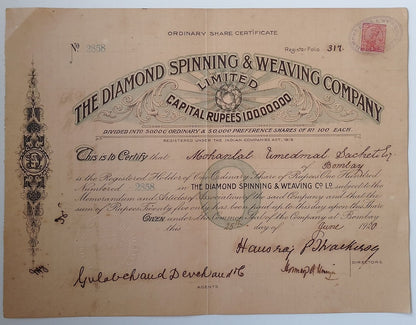 ORDINARY SHARE CERTIFICATE
No 2858
Register Folio 317.
THE DIAMOND SPINNING & WEAVING COMPANY
LIMITED
CAPITAL RUPEES 10000000
DIVIDED INTO 50000 ORDINARY & 50,000 PREFERENCE SHARES OF RS 100 EACH.
REGISTERED UNDER THE INDIAN COMPANIES ACT, 1913.
This is to Certify that Mohanlal
Bombay
is the Registered Holder of One Ordinary Share of Rupees One Hundred
Numbered 2858 in THE DIAMOND SPINNING & WEAVING CO LD subject to the
Memorandum and Articles of Association of the said Company and that the
sum of Rupees Twenty five only has been paid up to this day upon the Share
GIVEN under the Common Seal of the Company at Bombay
this 25th day of June 1920
DIRECTORS
Gulabchand Devchand & Co
AGENTS